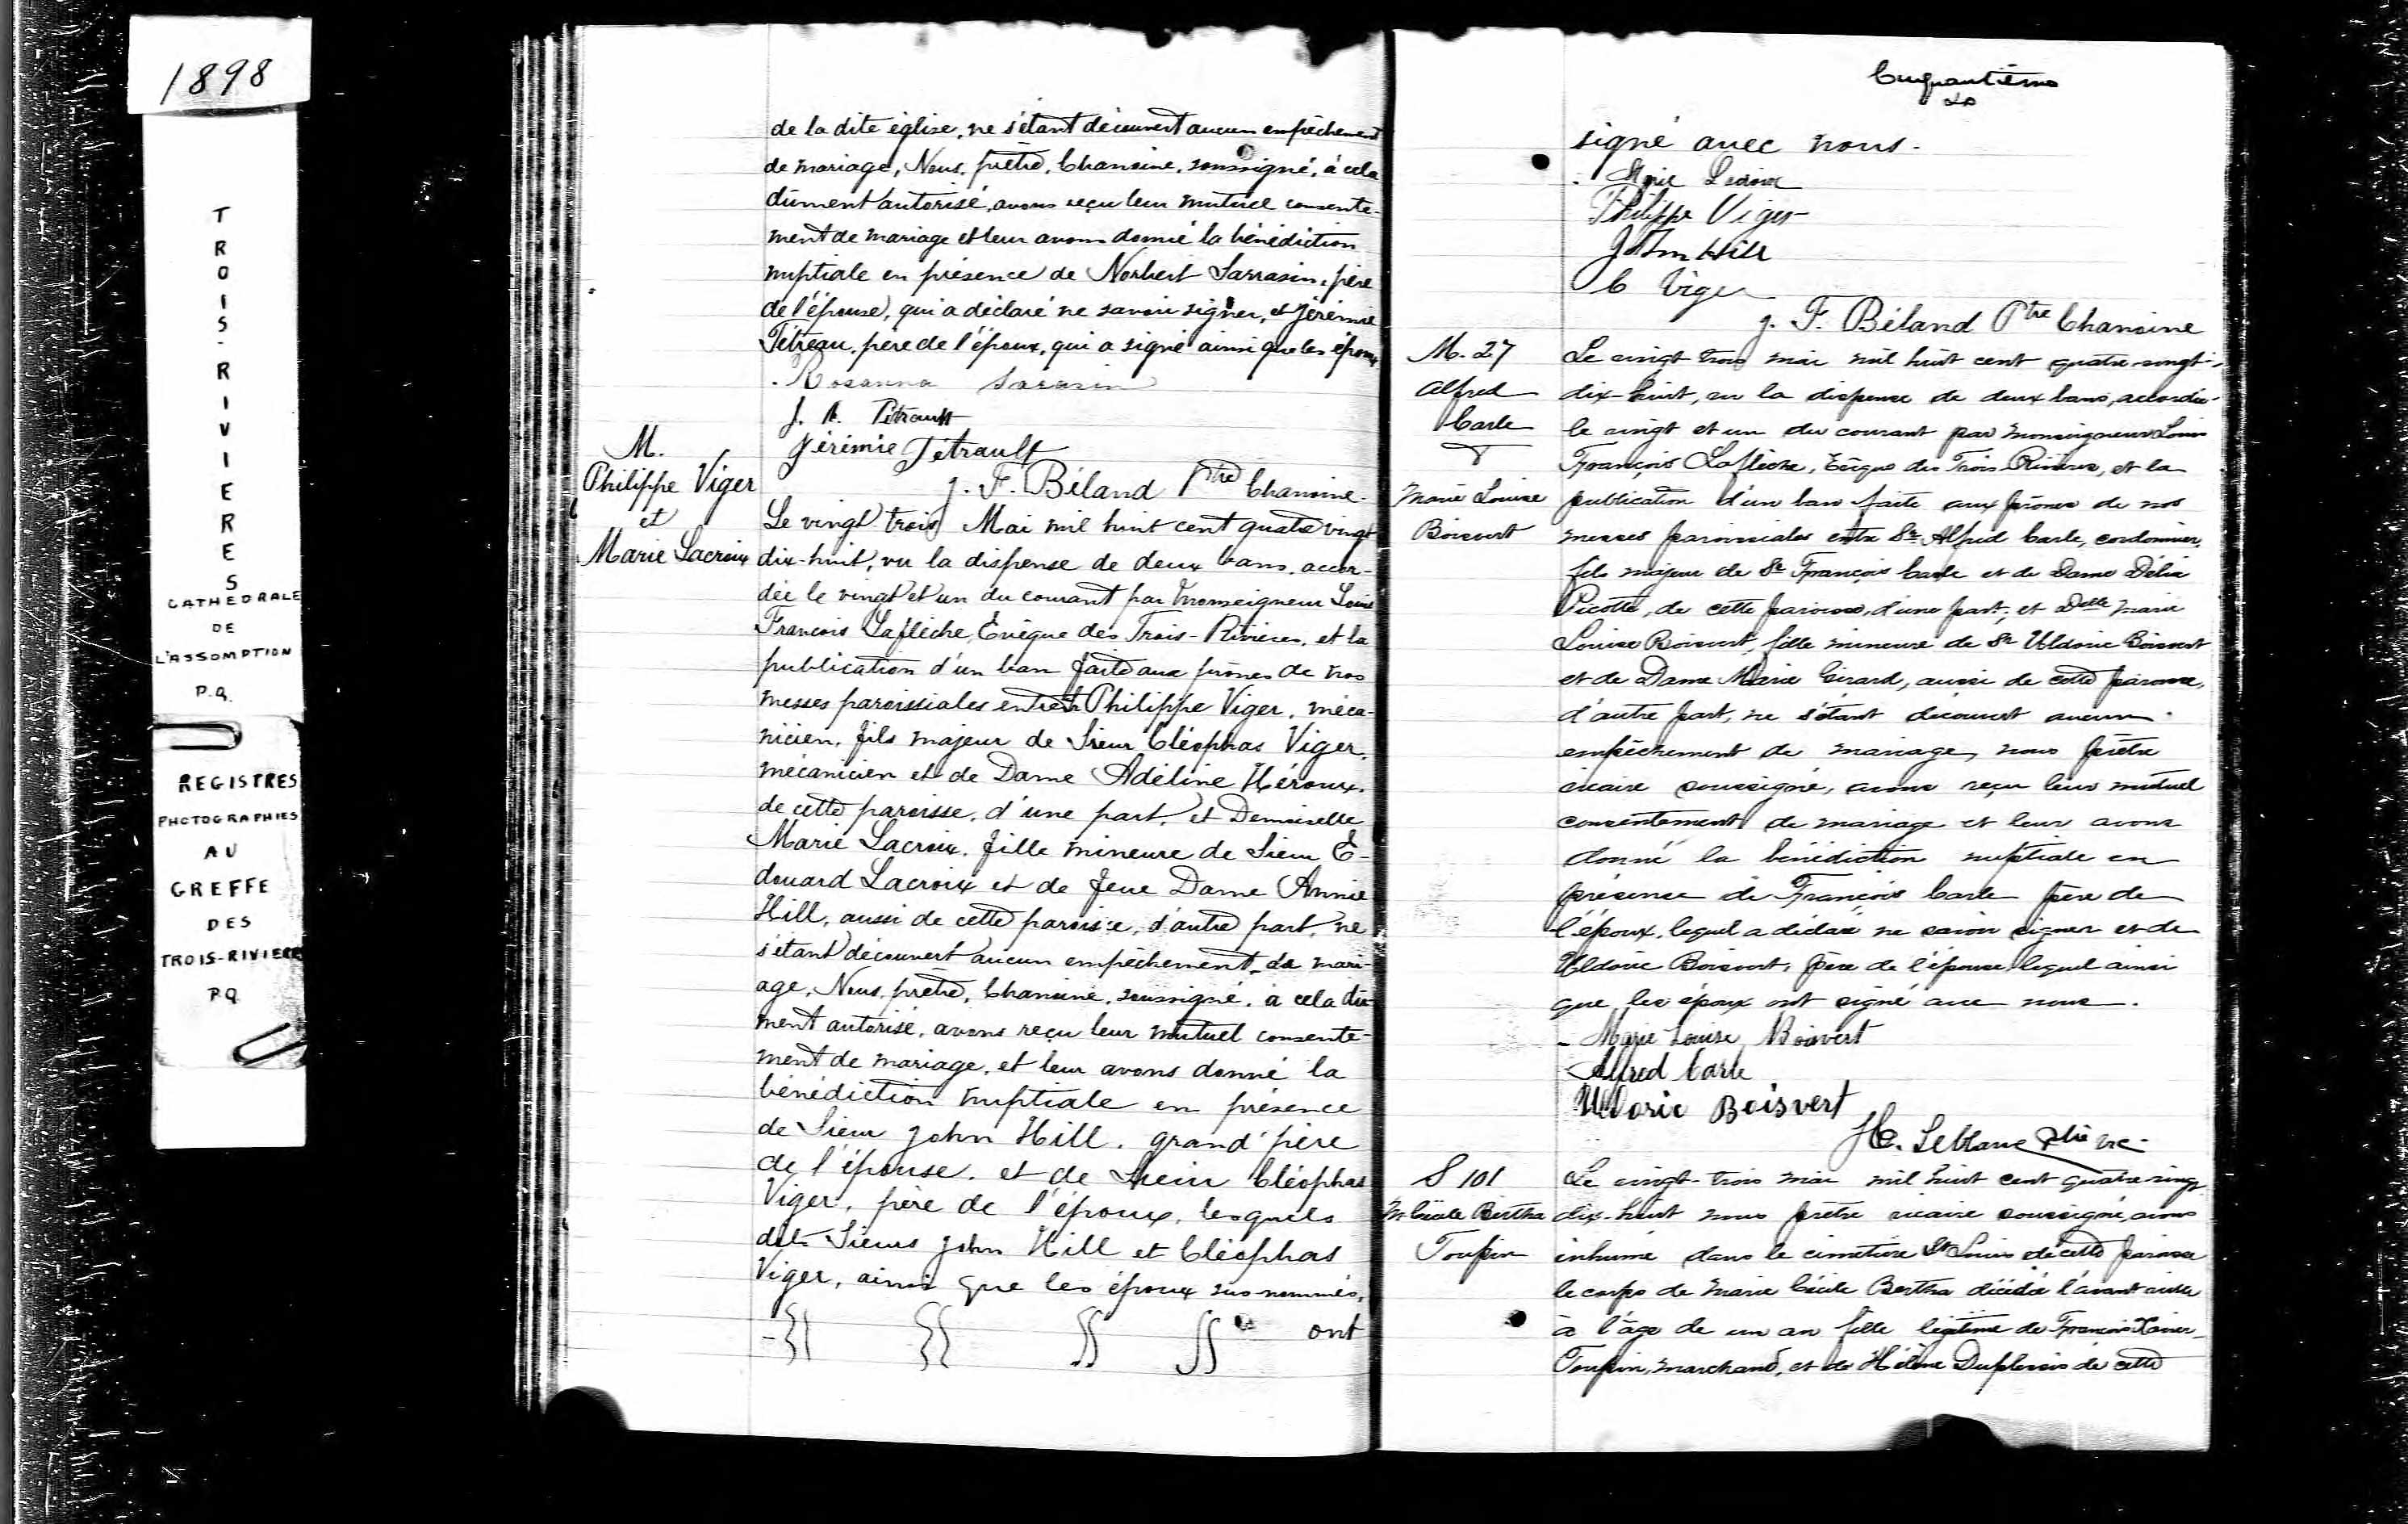 1898
TROIS-RIVIERES
CATHEDRALE
DE
L'ASSOMPTION
P.Q.
REGISTRES
PHOTOGRAPHIES
AU
GREFFE
DES
TROIS-RIVIERE
P.Q
de la dite église, ne s'étant découvert aucun empêchement
de mariage, Nous, prêtre, Chanoine, soussigné, à cela
dûment autorisé, avons reçu leur mutuel consente-
ment de mariage et leur avons donné la bénédiction
nuptiale en présence de Norbert Sarrasin, père
de l'épouse, qui a déclaré ne savoir signer, et Jérémie
Tétreau, père de l'époux, qui a signé ainsi que les époux
Rosanna Sarasin
J. Tétrault
Jérémie Tétrault
J. F. Béland Ptre Chanoine
M.
Philippe Viger
et
Marie Lacroix
Le vingt trois Mai mil huit cent quatre vingt
dix-huit, vu la dispense de deux bans, accor-
dée le vingt et un du courant par Monseigneur Louis
François Laflèche, Évêque des Trois-Rivières, et la
publication d'un ban faite aux prônes de nos
messes paroissiales entre Sr Philippe Viger, méca-
nicien, fils majeur de Sieur Cléophas Viger,
mécanicien et de Dame Adéline Héroux,
de cette paroisse, d'une part, et Demoiselle
Marie Lacroix, fille mineure de Sieur E-
douard Lacroix et de feue Dame Annie
Hill, aussi de cette paroisse, d'autre part, ne
s'étant découvert aucun empêchement de mari-
age, Nous, prêtre, Chanoine, soussigné, à cela dû-
ment autorisé, avons reçu leur mutuel consente-
ment de mariage, et leur avons donné la
bénédiction nuptiale en présence
de Sieur John Hill, grand'père
de l'épouse, et de Sieur Cléophas
Viger, père de l'époux, lesquels
dits Sieurs John Hill et Cléophas
Viger, ainsi que les époux sus-nommés,
ont
Cinquantième
signé avec nous.
Marie Lacroix
Philippe Viger
John Hill
C Viger
J. F. Béland Ptre Chanoine
M. 27
Alfred
Carle
&
Marie Louise
Boisvert
Le vingt-trois mai mil huit cent quatre-vingt-
dix-huit, vu la dispense de deux bans, accordée
le vingt et un du courant par Monseigneur Louis
François Laflèche, Evêque des Trois-Rivières, et la
publication d'un ban faite aux prônes de nos
messes paroissiales entre Sr Alfred Carle, cordonnier,
fils majeur de Sr François Carle et de Dame Délia
Picotte, de cette paroisse, d'une part, et Delle Marie
Louise Boisvert, fille mineure de Sr Uldoric Boisvert
et de Dame Marie Girard, aussi de cette paroisse,
d'autre part, ne s'étant découvert aucun
empêchement de mariage, nous prêtre
vicaire soussigné, avons reçu leur mutuel
consentement de mariage et leur avons
donné la bénédiction nuptiale en
présence de François Carle père de
l'époux, lequel a déclaré ne savoir signer et de
Uldoric Boisvert, père de l'épouse, lequel ainsi
que les époux ont signé avec nous.
Marie Louise Boisvert
Alfred Carle
Uldoric Boisvert
Leblanc Ptre vic
S 101
M. Cécile Bertha
Toupin
Le vingt-trois mai mil huit cent quatre-vingt
dix-huit nous prêtre vicaire soussigné, avons
inhumé dans le cimetière St Louis de cette paroisse
le corps de Marie Cécile Bertha décédée l'avant-veille
à l'âge de un an fille légitime de François Xavier
Toupin, marchand, et de Hélène Duplessis de cette